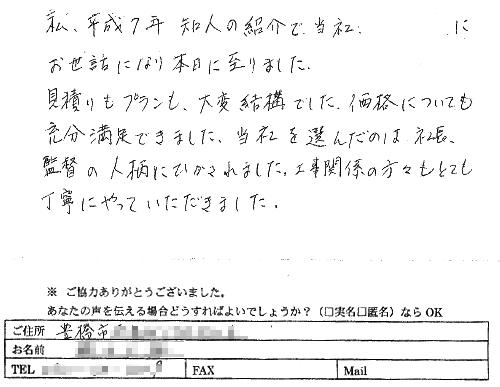 私、平成7年 知人の紹介で当社 に
お世話になり本日に至りました。
見積りもプランも、大変結構でした。価格についても
充分満足できました。当社を選んだのは社長、
監督の人柄にひかされました。工事関係の方々もとても
丁寧にやっていただきました。
※ ご協力ありがとうございました。
あなたの声を伝える場合どうすればよいでしょうか?(□実名□匿名)ならOK
ご住所 豊橋市
お名前
TEL FAX Mail